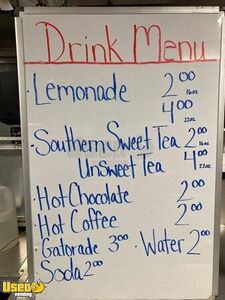 Drink Menu
Lemonade 2.00
16oz
4.00
22oz
Southern Sweet Tea 2.00
16oz
UnSweet Tea 4.00
22oz
Hot Chocolate 2.00
Hot Coffee 2.00
Gatorade 3.00 · Water 2.00
Soda 2.00
Used
Vending